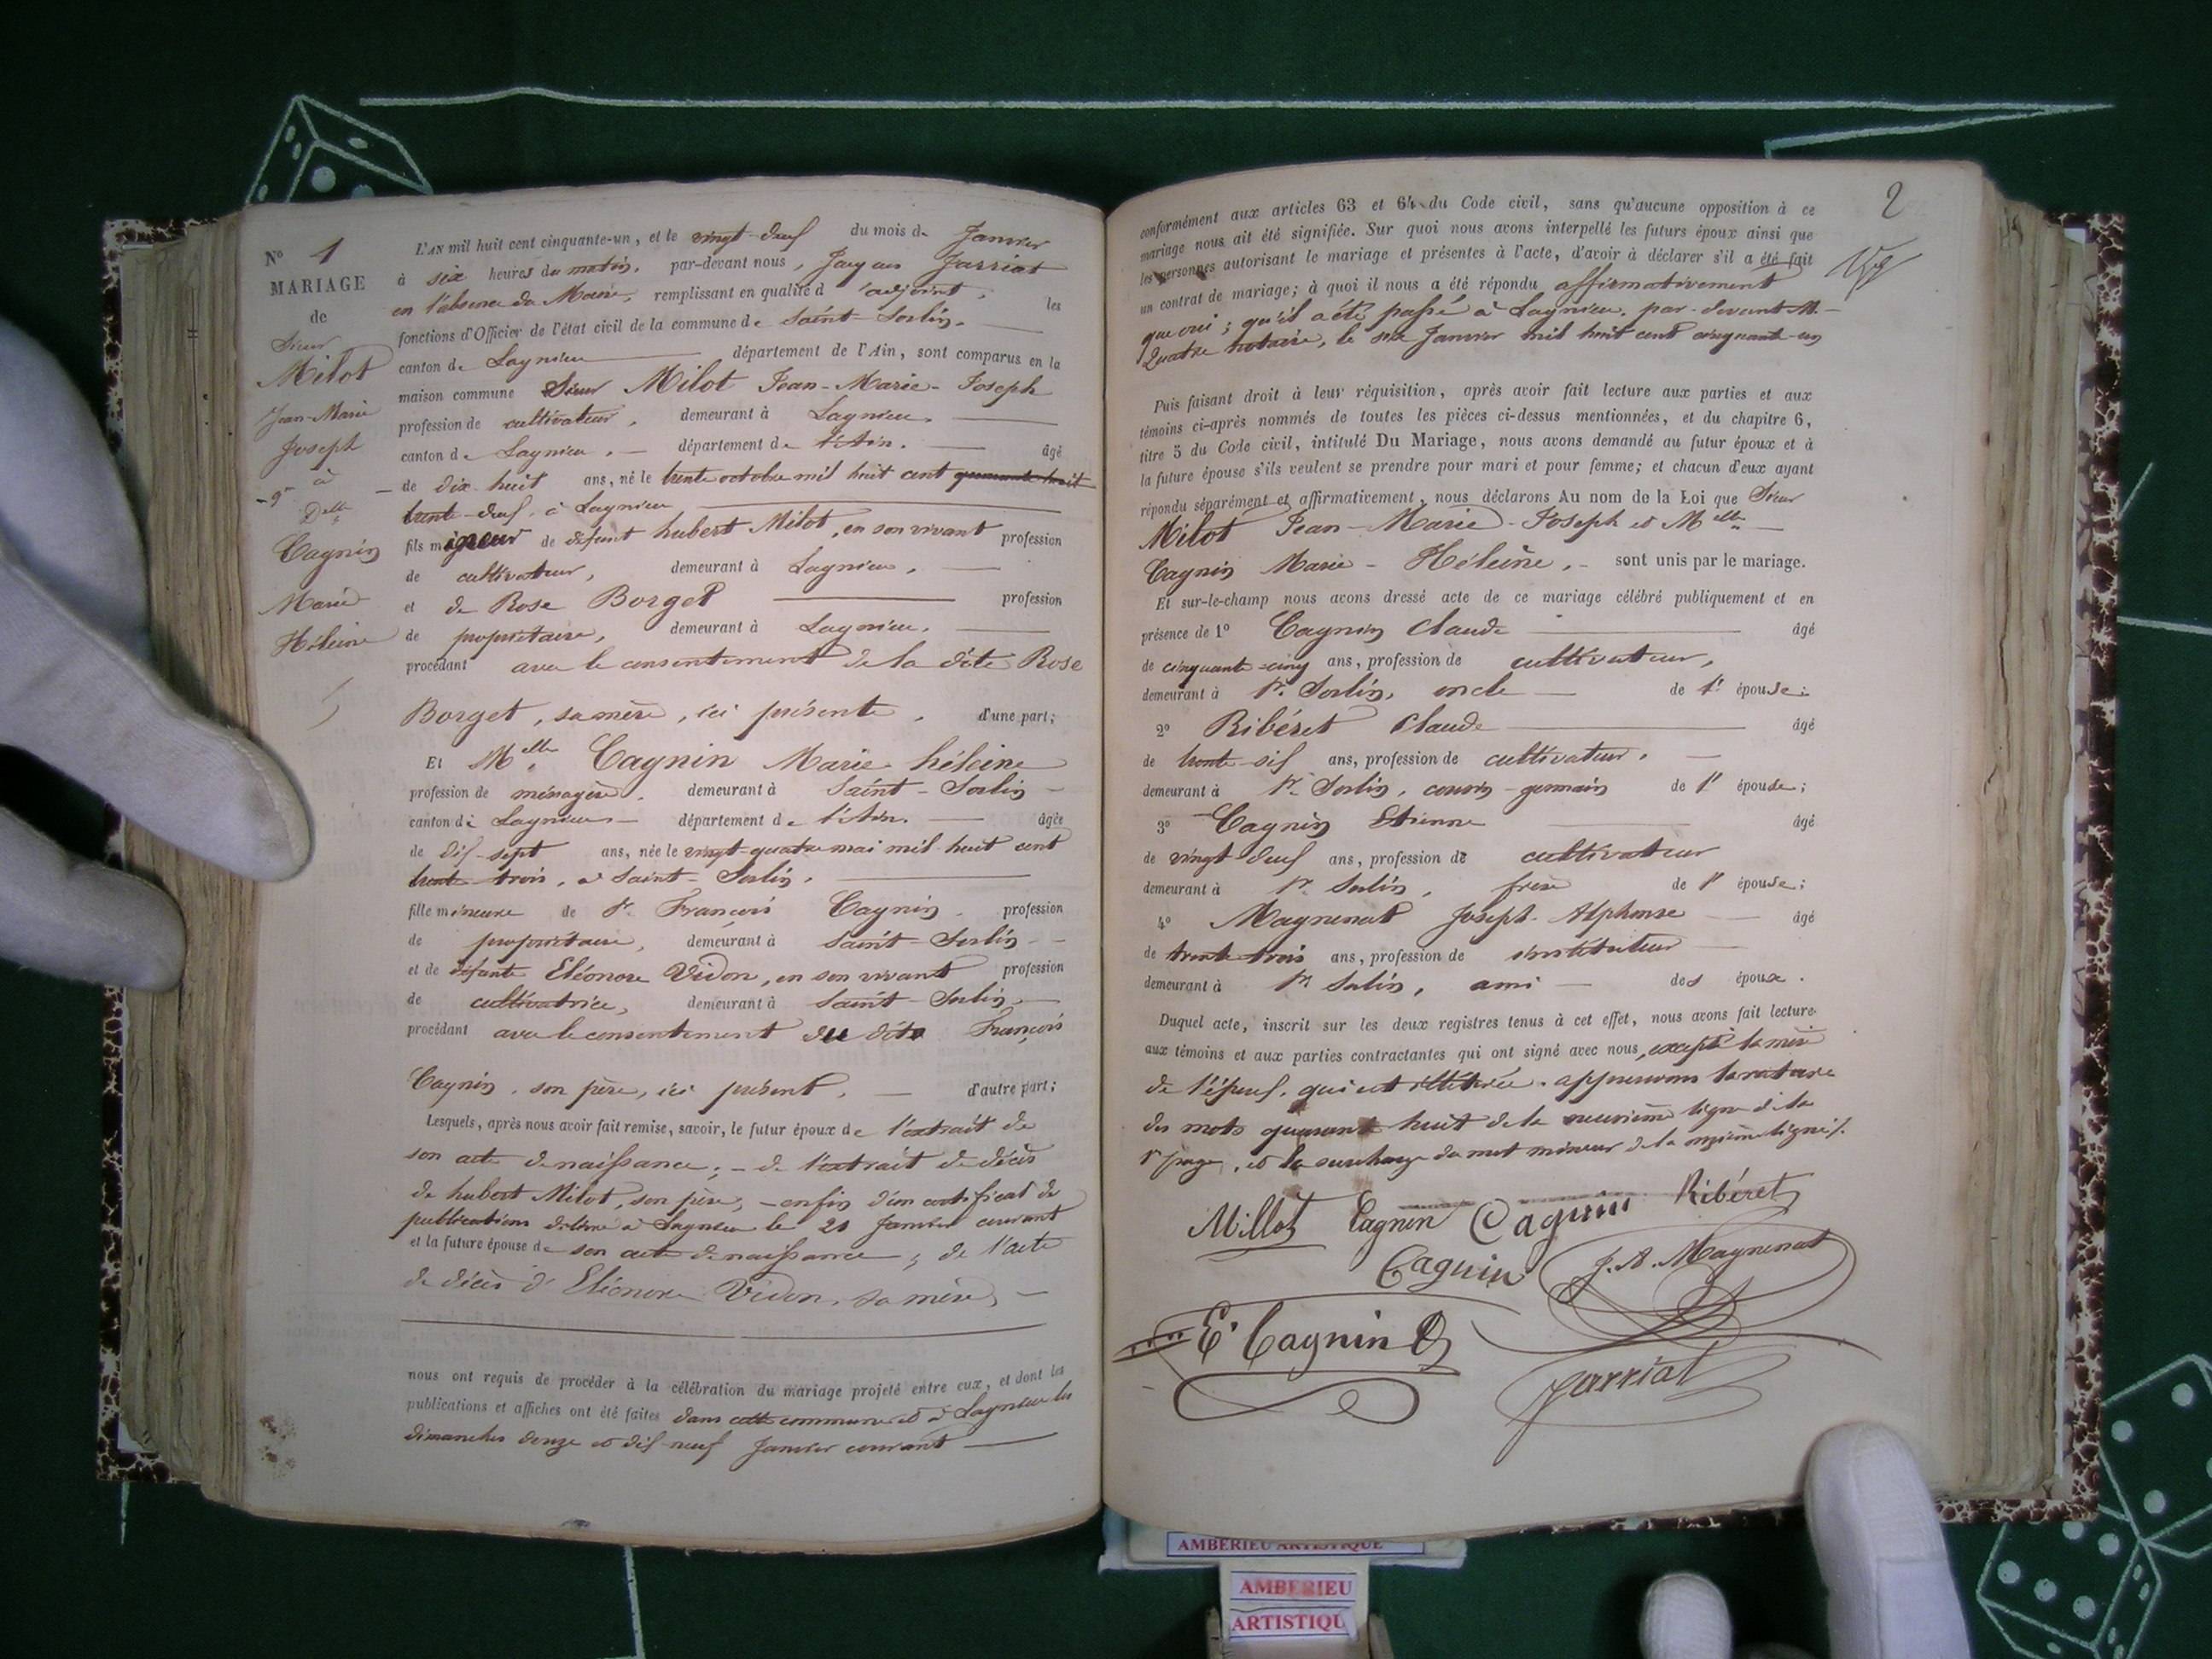 N° 1
MARIAGE
de
Sieur
Milot
Jean-Marie
Joseph
à
Delle
Cagnin
Marie
Héleine
L'AN mil huit cent cinquante-un, et le vingt-deux du mois de Janvier
à six heures du matin, par-devant nous, Jacques Jarriat
en l'absence du Maire, remplissant en qualité d'adjoint, les
fonctions d'Officier de l'état civil de la commune de Saint-Sorlin,
canton de Lagnieu département de l'Ain, sont comparus en la
maison commune Sieur Milot Jean-Marie-Joseph
profession de cultivateur, demeurant à Lagnieu,
canton de Lagnieu, département de l'Ain, âgé
de dix-huit ans, né le trente octobre mil huit cent quarante-huit
trente-deux, à Lagnieu
fils mineur de défunt hubert Milot, en son vivant profession
de cultivateur, demeurant à Lagnieu,
et de Rose Borget profession
de propriétaire, demeurant à Lagnieu,
procédant avec le consentement de la dite Rose
Borget, sa mère, ici présente, d'une part;
Et Melle Cagnin Marie héleine
profession de ménagère, demeurant à Saint-Sorlin
canton de Lagnieu département de l'Ain, âgée
de dix-sept ans, née le vingt-quatre mai mil huit cent
trente-trois, à Saint-Sorlin,
fille mineure de Sr François Cagnin, profession
de propriétaire, demeurant à Saint-Sorlin
et de défunte Eléonore Vidon, en son vivant profession
de cultivatrice, demeurant à Saint-Sorlin,
procédant avec le consentement du dit François
Cagnin, son père, ici présent, d'autre part;
Lesquels, après nous avoir fait remise, savoir, le futur époux de l'extrait de
son acte de naissance; - de l'extrait de décès
de hubert Milot, son père, - enfin d'un certificat de
publications délivré à Lagnieu le 21 Janvier courant
et la future épouse de son acte de naissance; de l'acte
de décès d'Eléonore Vidon, sa mère,
nous ont requis de procéder à la célébration du mariage projeté entre eux, et dont les
publications et affiches ont été faites dans cette commune et à Lagnieu les
dimanches douze et dix-neuf Janvier courant
2
conformément aux articles 63 et 64 du Code civil, sans qu'aucune opposition à ce
mariage nous ait été signifiée. Sur quoi nous avons interpellé les futurs époux ainsi que
les personnes autorisant le mariage et présentes à l'acte, d'avoir à déclarer s'il a été fait
un contrat de mariage; à quoi il nous a été répondu affirmativement
que oui; qu'il a été passé à Lagnieu, par-devant M.
Quatre notaire, le six Janvier mil huit cent cinquante-un
Puis faisant droit à leur réquisition, après avoir fait lecture aux parties et aux
témoins ci-après nommés de toutes les pièces ci-dessus mentionnées, et du chapitre 6,
titre 5 du Code civil, intitulé Du Mariage, nous avons demandé au futur époux et à
la future épouse s'ils veulent se prendre pour mari et pour femme; et chacun d'eux ayant
répondu séparément et affirmativement, nous déclarons Au nom de la Loi que Sieur
Milot Jean-Marie-Joseph et Melle
Cagnin Marie-Héleine, sont unis par le mariage.
Et sur-le-champ nous avons dressé acte de ce mariage célébré publiquement et en
présence de 1° Cagnin Claude âgé
de cinquante-cinq ans, profession de cultivateur,
demeurant à St Sorlin, oncle de l' épouse;
2° Ribéret Claude âgé
de trente-six ans, profession de cultivateur,
demeurant à St Sorlin, cousin-germain de l' épouse;
3° Cagnin Etienne âgé
de vingt-deux ans, profession de cultivateur
demeurant à St Sorlin, frère de l' épouse;
4° Magnenat Joseph-Alphonse âgé
de trente-trois ans, profession de instituteur
demeurant à St Sorlin, ami des époux.
Duquel acte, inscrit sur les deux registres tenus à cet effet, nous avons fait lecture
aux témoins et aux parties contractantes qui ont signé avec nous, excepté la mère
de l'époux, qui est illétérée. approuvons la rature
des mots quarante huit de la neuvième ligne de la
1re page, et la surcharge du mot mineur de la onzième ligne
Millot Cagnin Cagnin Ribéret
Cagnin J. A. Magnenat
E. Cagnin
Jarriat
AMBERIEU ARTISTIQUE
AMBERIEU
ARTISTIQU